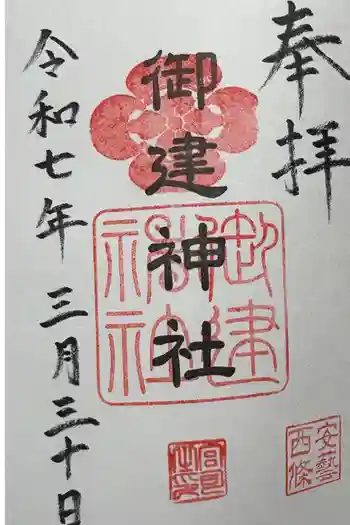 奉拝
御建神社
令和七年 三月三十日
御建
神社
安藝
西條
宮司
之印